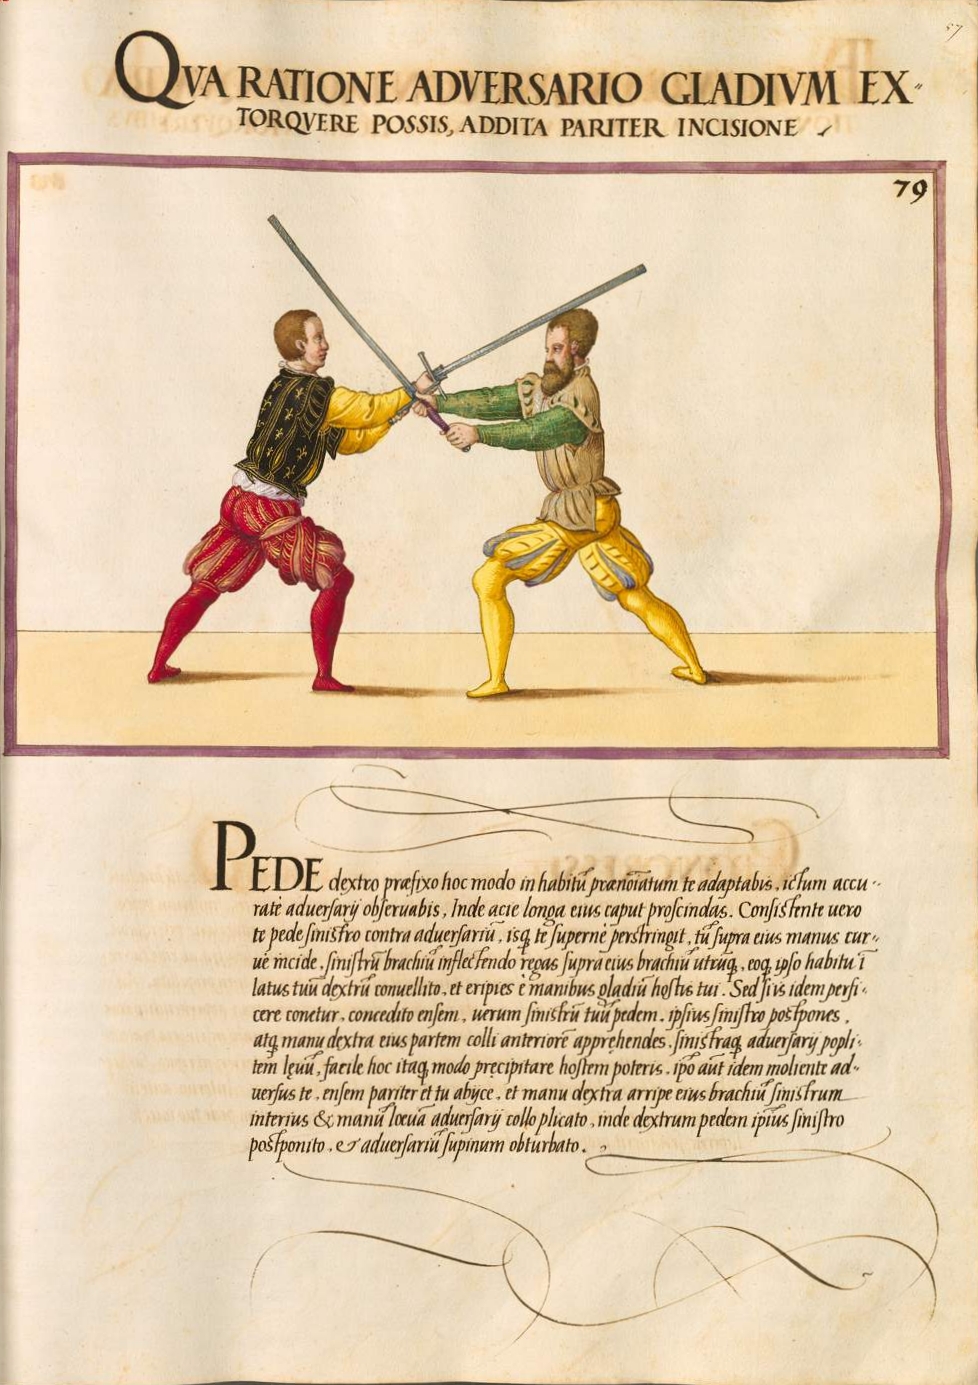 57
QVA RATIONE ADVERSARIO GLADIVM EX″
TORQVERE POSSIS, ADDITA PARITER INCISIONE
79
PEDE dextro præfixo hoc modo in habitũ prænoĩatum te adaptabis, ictum accu⸗
rate adversarij observabis, Inde acie longa eius caput proscindas. Consistente vero
te pede sinistro contra adversariũ, isq, te superne perstringit, tũ supra eius manus cur⸗
ue incide, sinistrũ brachiũ inflectendo tegas supra eius brachiũ utrũq, eoq, ipso habitu ĩ
latus tuũ dextrũ convellito, et eripies è manibus gladiũ hostis tui. Sed si is idem perfi⸗
cere conetur, concedito ensem, verum sinistrũ tuũ pedem, ipsius sinistro postpones,
atq, manu dextra eius partem colli anteriorẽ apprehendes, sinistraq, adversarij popli⸗
tem lęuũ, facile hoc itaq, modo pręcipitare hostem poteris, ipo aũt idem moliente ad⸗
versus te, ensem pariter et tu abijce, et manu dextra arripe eius brachiũ sinistrum
interius & manũ locuã adversarij collo plicato, inde dextrum pedem ipius sinistro
postponito, & adversariũ supinum obturbato.